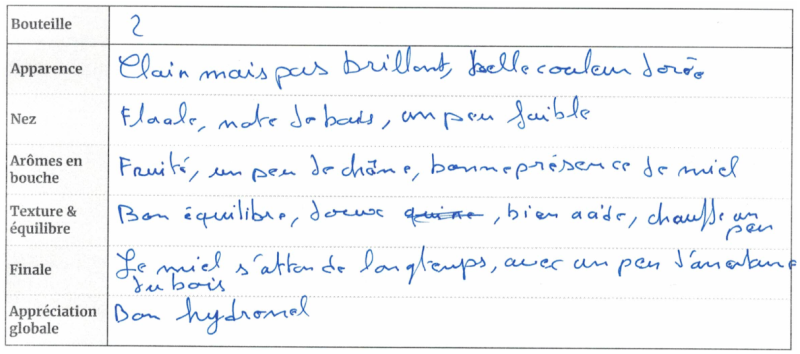 Bouteille 2
Apparence Clair mais pas brillant, belle couleur dorée
Nez Florale, note de bois, un peu faible
Arômes en bouche Fruité, un peu de chêne, bonne présence de miel
Texture & équilibre Bon équilibre, doux, bien acide, chauffe un peu
Finale Le miel s'attarde longtemps, avec un peu d'amertume du bois
Appréciation globale Bon hydromel